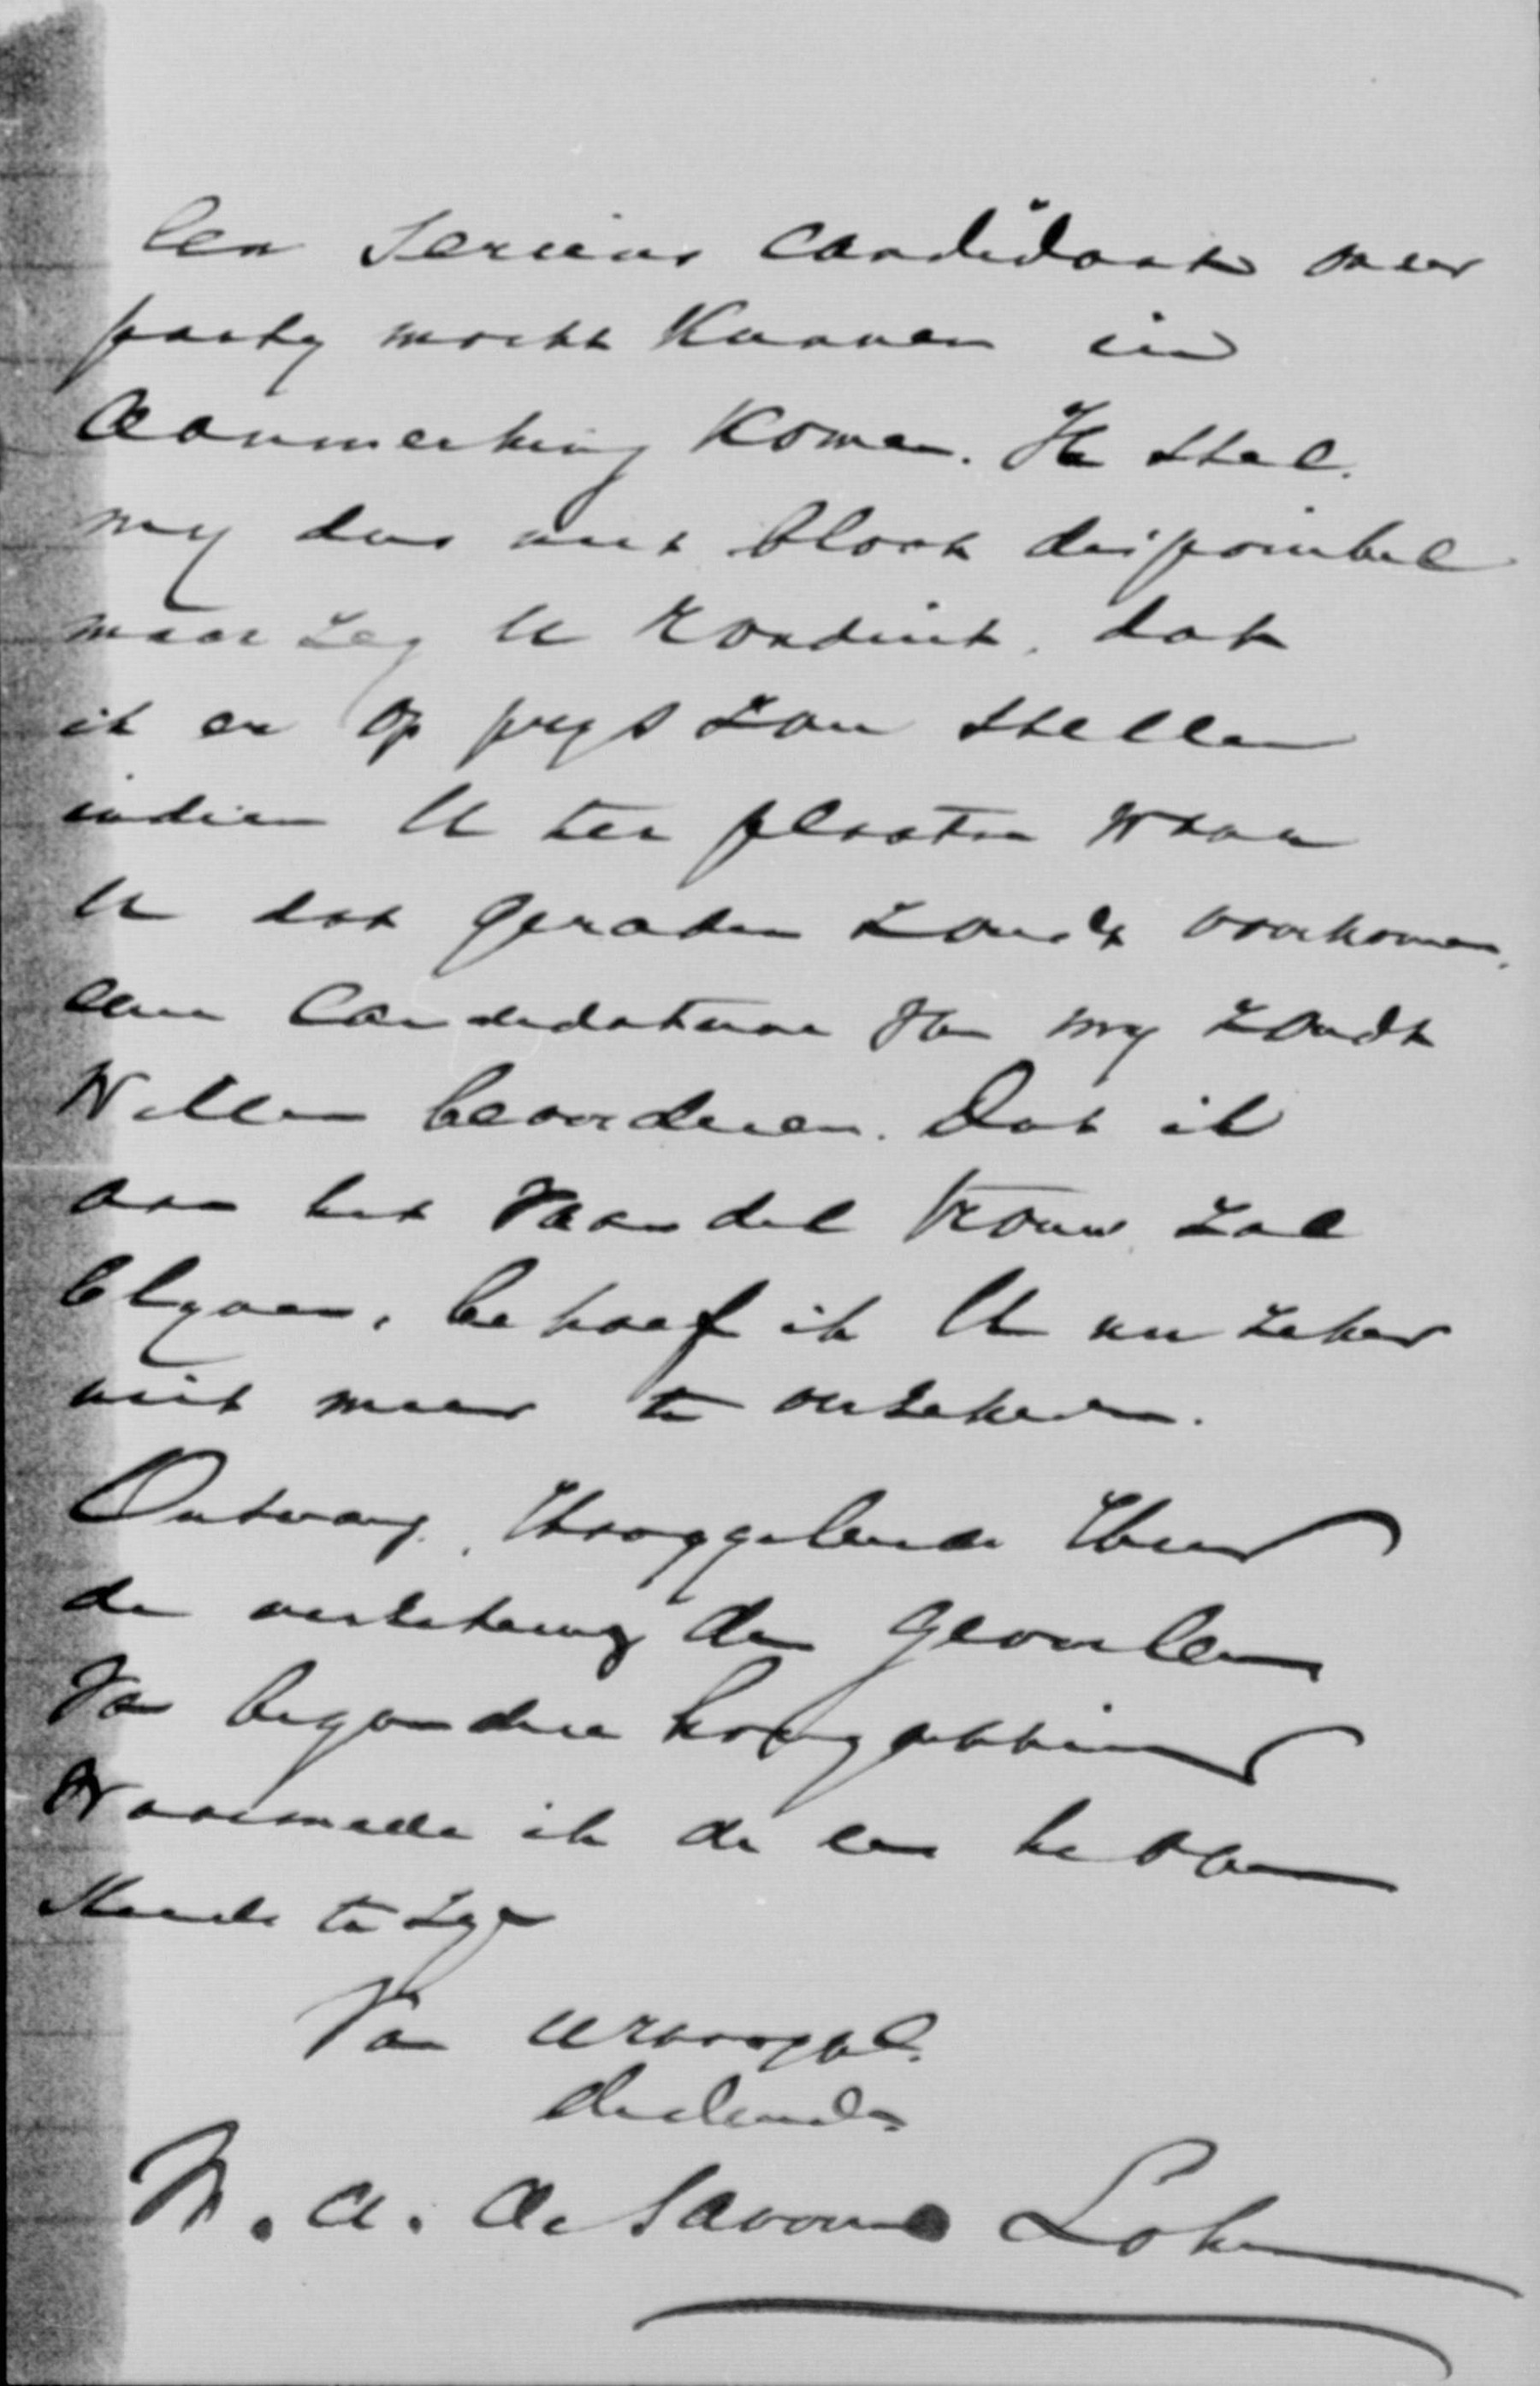 een serieus candidaat onzer
party mocht kunnen in
aanmerking komen. Ik stel
my dus niet bloot disponibel
maar zeg U ronduit, dat
ik er op prys zou stellen
indien U ter plaatse waar
U dat geraden zoudt voorkomen,
eene Candidatuur van my zoudt
willen bevorderen. Dat ik
aan het Vaandel trouw zal
blyven, behoef ik U nu zeker
niet meer te verzekeren.
Ontvang, Hooggeleerde Heer
de verzekering der gevoelens
van byzondere hoogachting
Waarmede ik de eer heb van
steeds te zyn
Van UHooggel.
dienaar
W. A. de Savornin Lohman